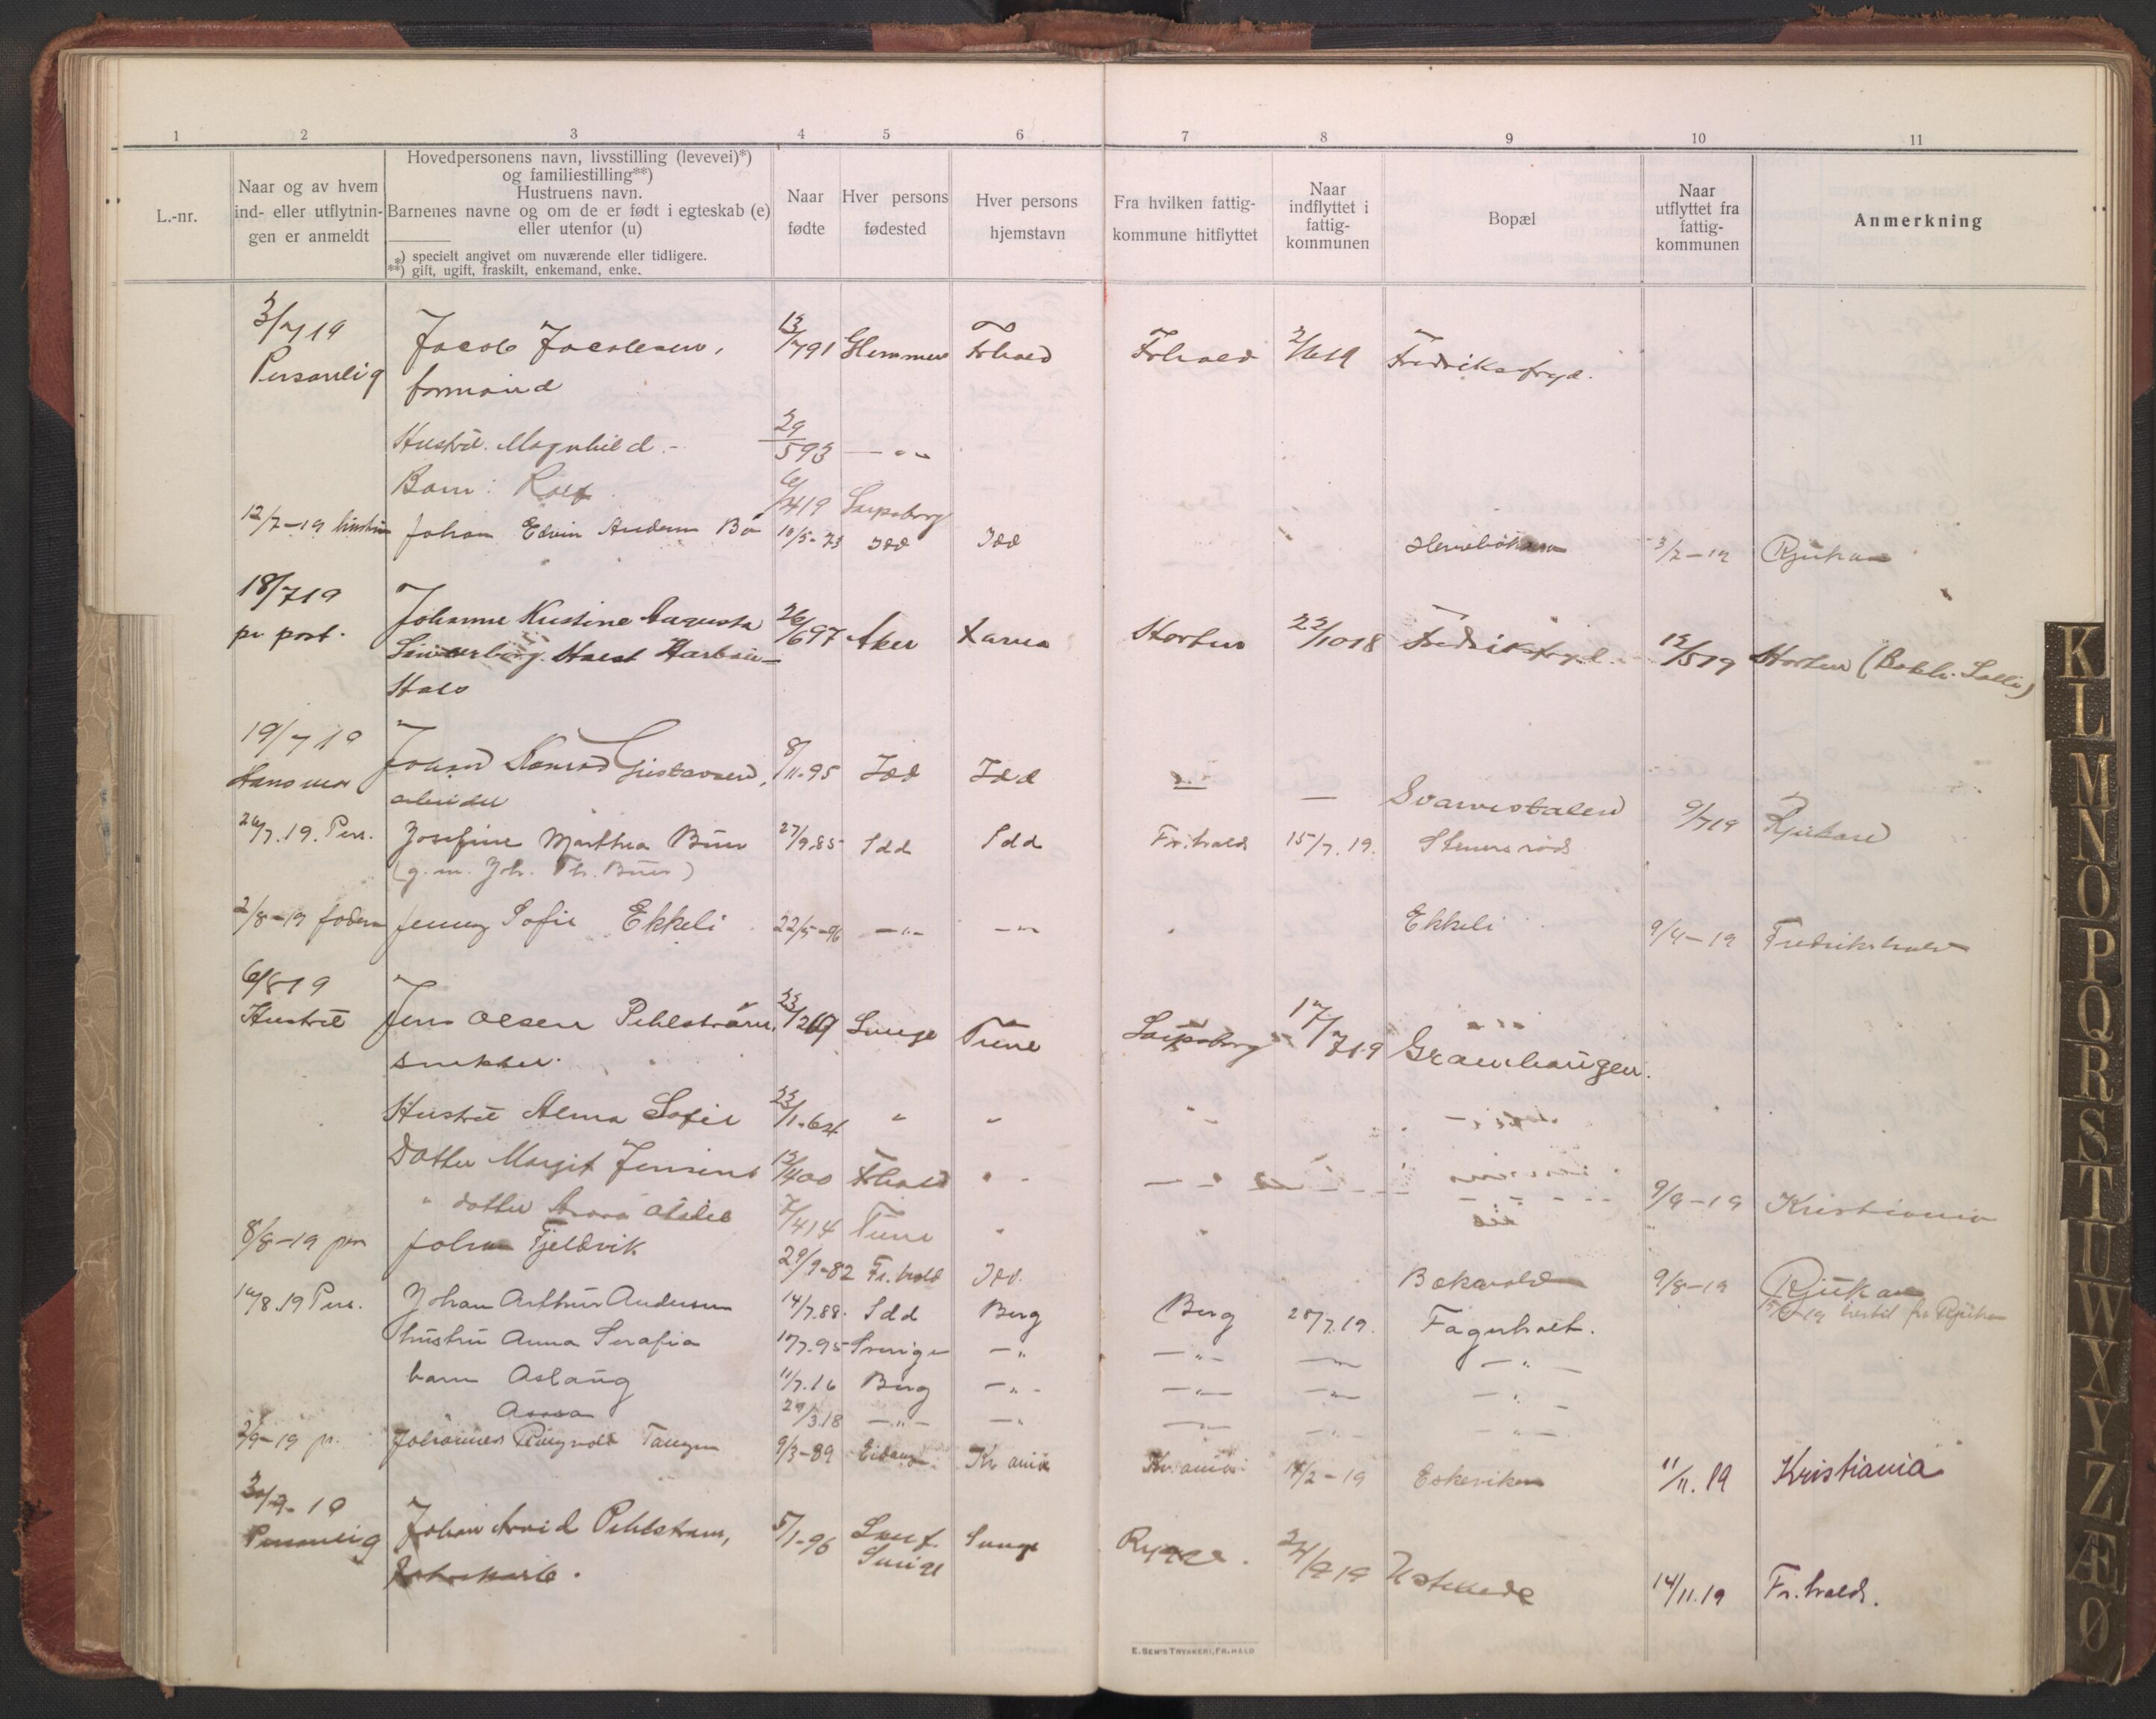 1 2 3 4 5 6 7 8 9 10 11
L.-nr.
Naar og av hvem
ind- eller utflytnin-
gen er anmeldt
Hovedpersonens navn, livsstilling (levevei)*)
og familiestilling**)
Hustruens navn.
Barnenes navne og om de er født i egteskab (e)
eller utenfor (u)
*) specielt angivet om nuværende eller tidligere.
**) gift, ugift, fraskilt, enkemand, enke.
Naar
fødte
Hver persons
fødested
Hver persons
hjemstavn
Fra hvilken fattig-
kommune hitflyttet
Naar
indflyttet i
fattig-
kommunen
Bopæl
Naar
utflyttet fra
fattig-
kommunen
Anmerkning
3/7 19 Jacob Jacobsen, 13/7 91 Glemmen Frhald Frhald 2/6 19 Fredriksfryd.
Personlig formand
Hustru Magnhild - 29/5 93 — " —
Barn: Rolf 6/4 19 Sarpsborg
12/7-19 hustru Johan Edvin Andersen Bø 10/5-73 Idd Idd 3/2-19 Rjukan
18/7 19 Johanne Kristine Augusta 26/6 97 Aker Horten 22/10 18 Fredriksfryd 12/5 19 Horten
pr post.
19/7 19 Johan Konrad Gustavsen, 8/11-95 Idd Idd — Svarvestalen 9/7 19 Rjukan
Hans mor arbeider
26/7.19. Pers. Josefine Marthea Buer 27/9.85 Idd Idd Fr.hald 15/7.19. Stenersrød
(g. m. Joh. Th. Buer)
2/8-19 faderen Jenny Sofie Ekkeli 22/5-96 —"— —"— Ekkeli 9/4-19 Fredrikshald
6/8 19 Jens Olsen Pihlstrøm, 23/2 69 Tune Sarpsborg 17/7 19 Granhaugen.
Hustru snekker.
Hustru Alma Sofie 23/1-64 " "
Datter Margit Jensine 13/4 00 Frhald "
" datter Anna 7/4 14 Tune " 9/9-19 Kristiania
8/8-19 pers Johan Fjeldvik 29/9-82 Fr.hald Idd. 9/8-19 Rjukan
16/8.19 Pers. Johan Arthur Andersen 14/7.88. Idd Berg Berg 28/7.19. Fagerholt.
hustru Anna Serafia 17/7.95 Sverige —"— —"— —"— —"—
barn Aslaug 11/7.16 Berg —"— —"— —"— —"—
" Aasa 29/3.18 —"— —"— —"— —"— —"—
2/9-19 pr. Johannes Ringvold Tangen 9/3-89 Eidanger Kr.ania Kr.ania 14/2-19 Eskeviken 11/11.19 Kristiania
30/9-19 Johan Arvid Pihlstrøm, 5/1-96 Rygge. 24/9 19 14/11.19 Fr.hald.
Personlig
E. SEM'S TRYKKERI, FR.HALD
K
L
M
N
O
P
Q
R
S
T
U
W
X
Y
Z
Æ
Ø